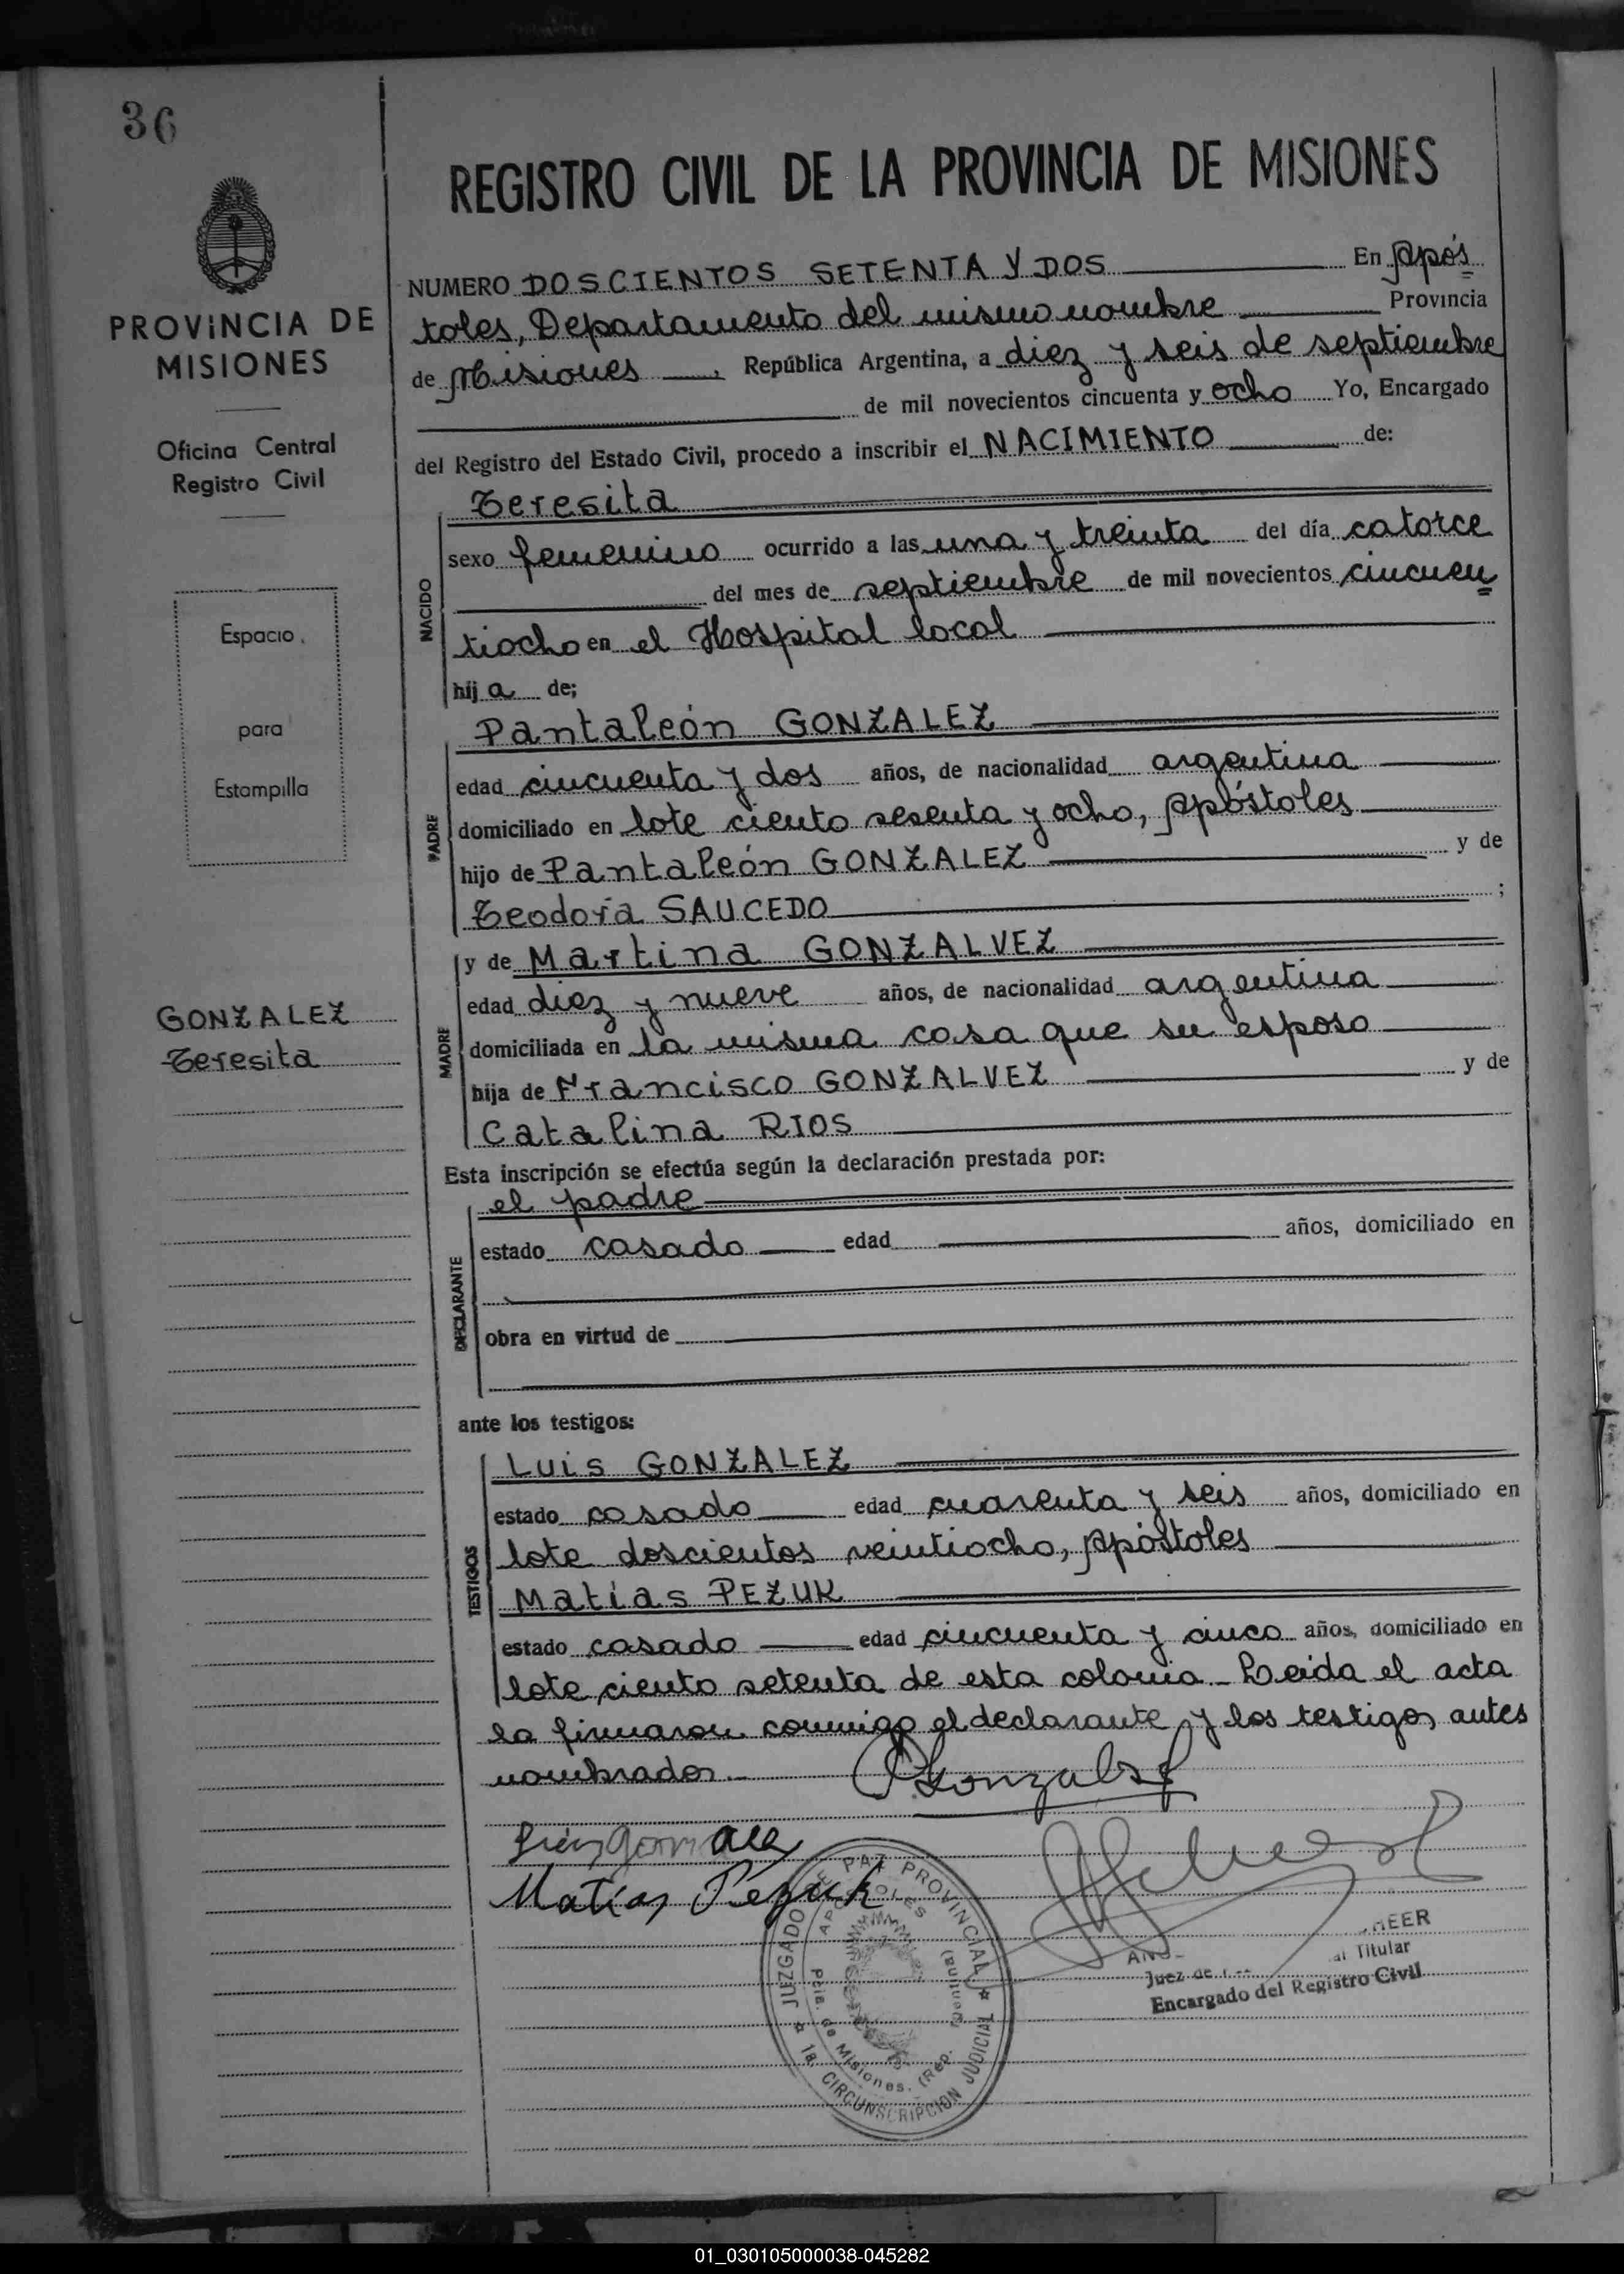 36
REGISTRO CIVIL DE LA PROVINCIA DE MISIONES
PROVINCIA DE
MISIONES
Oficina Central
Registro Civil
Espacio
para
Estampilla
GONZALEZ
Teresita
NUMERO DOSCIENTOS SETENTA Y DOS En Após
toles, Departamento del mismo nombre Provincia
de Misiones, República Argentina, a diez y seis de septiembre
de mil novecientos cincuenta y ocho Yo, Encargado
del Registro del Estado Civil, procedo a inscribir el NACIMIENTO de:
NACIDO
Teresita
sexo femenino ocurrido a las una y treinta del día catorce
del mes de septiembre de mil novecientos cincuen
tiocho en el Hospital local
hij a de;
PADRE
Pantaleón GONZALEZ
edad cincuenta y dos años, de nacionalidad argentina
domiciliado en lote ciento sesenta y ocho, Apóstoles
hijo de Pantaleón GONZALEZ y de
Teodora SAUCEDO ;
MADRE
y de Martina GONZALVEZ
edad diez y nueve años, de nacionalidad argentina
domiciliada en la misma casa que su esposo
hija de Francisco GONZALVEZ y de
Catalina RIOS
Esta inscripción se efectúa según la declaración prestada por:
DECLARANTE
el padre
estado casado edad años, domiciliado en
obra en virtud de
ante los testigos:
TESTIGOS
Luis GONZALEZ
estado casado edad cuarenta y seis años, domiciliado en
lote doscientos veintiocho, Apóstoles
Matías PEZUK
estado casado edad cincuenta y cinco años, domiciliado en
lote ciento setenta de esta colonia - Leida el acta
la firmaron conmigo el declarante y los testigos antes
nombrados.-
PGonzalez
Matías Pezuk
JUZGADO DE PAZ PROVINCIAL
APOSTOLES
Pcia. de Misiones. (Rep. Argentina)
1a. CIRCUNSCRIPCION JUDICIAL
HEER
Titular
Juez de
Encargado del Registro Civil
01_030105000038-045282